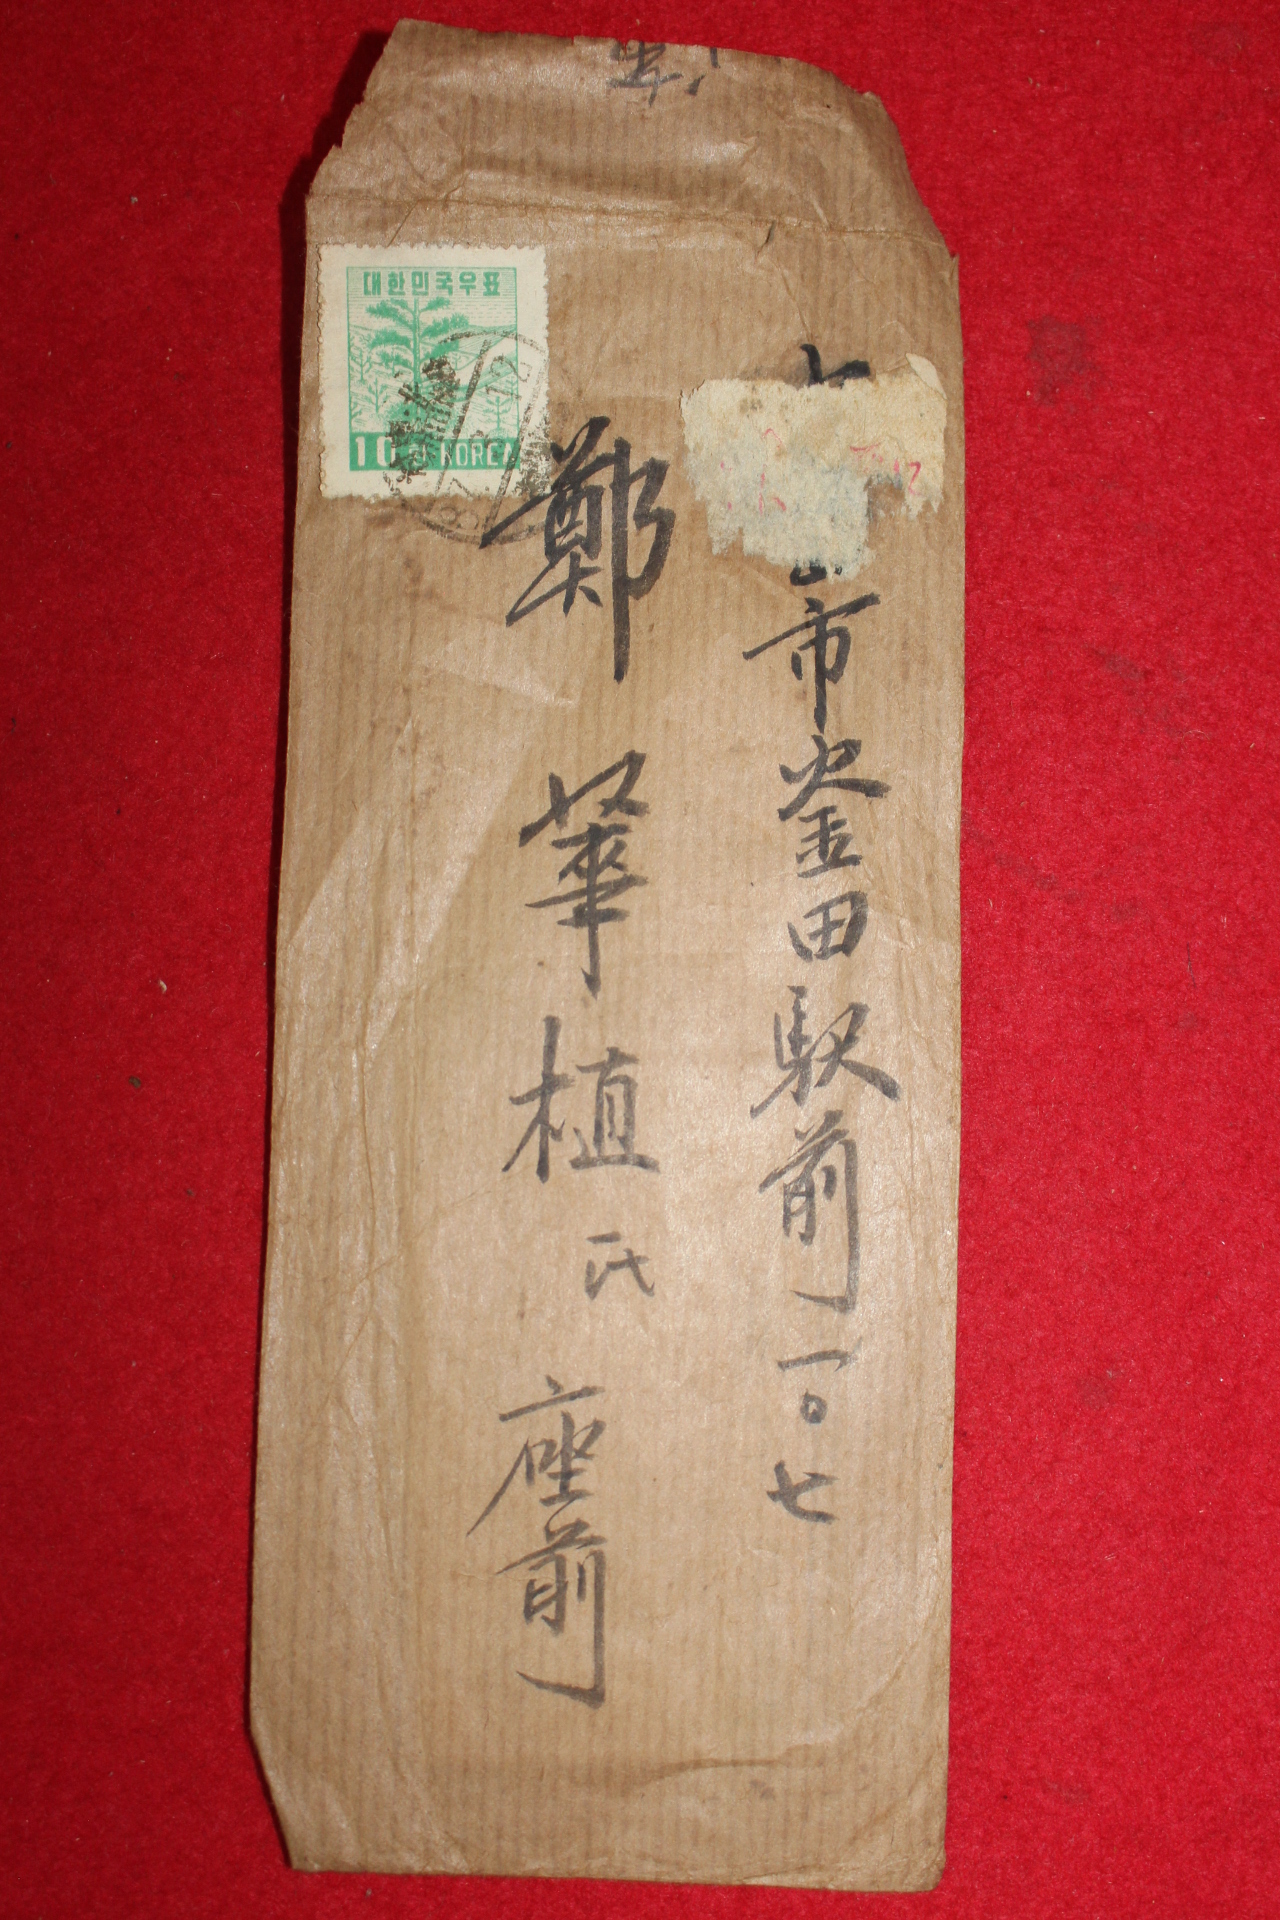 대한민국우표
10 환 KOREA
市釜田駅前一〇七
鄭華植氏 座前